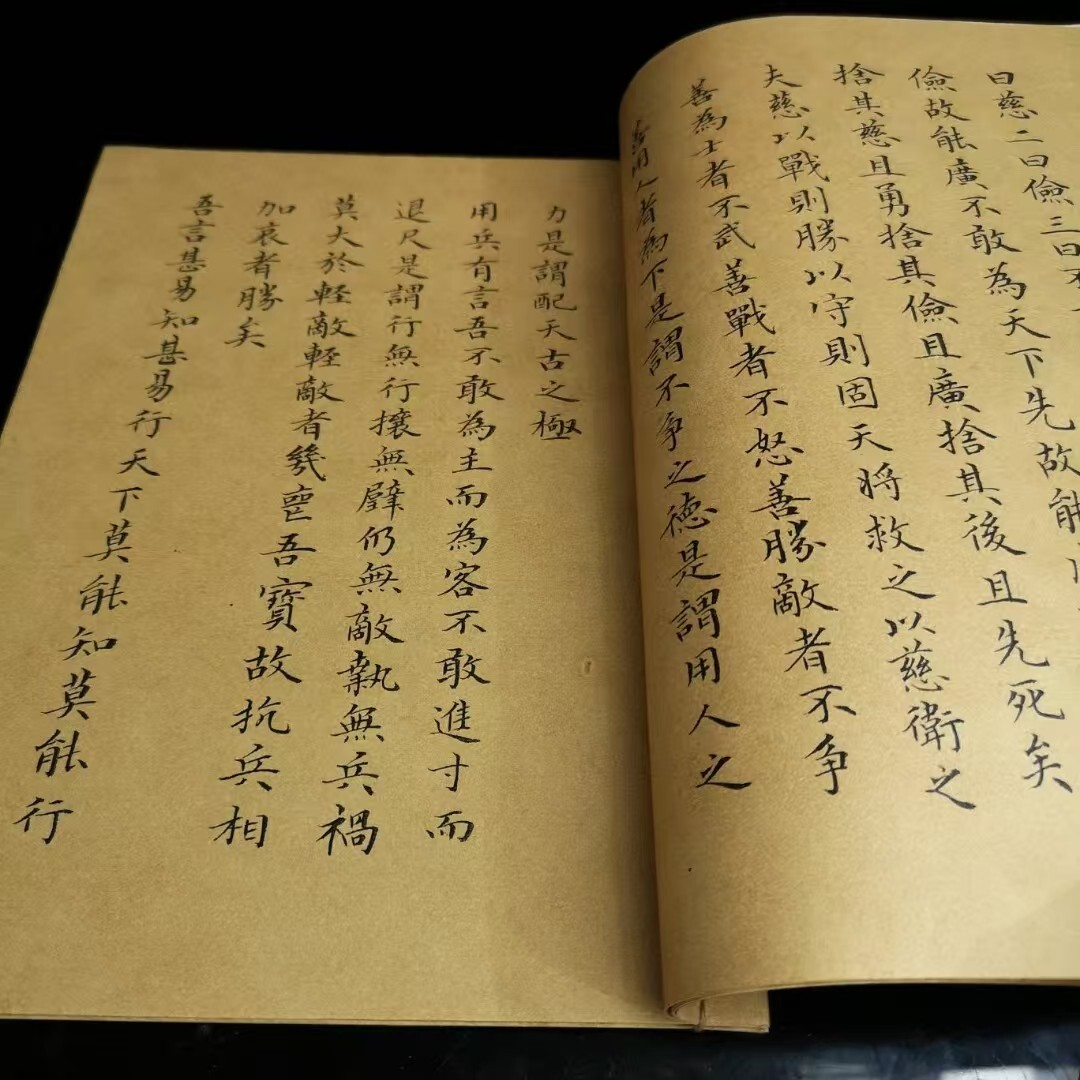 曰慈二曰儉三曰不
儉故能廣不敢為天下先故能
捨其慈且勇捨其儉且廣捨其後且先死矣
夫慈以戰則勝以守則固天將救之以慈衛之
善為士者不武善戰者不怒善勝敵者不争
善用人者為下是謂不争之德是謂用人之
力是謂配天古之極
用兵有言吾不敢為主而為客不敢進寸而
退尺是謂行無行攘無臂仍無敵執無兵禍
莫大於軽敵軽敵者幾喪吾寶故抗兵相
加哀者勝矣
吾言甚易知甚易行天下莫能知莫能行